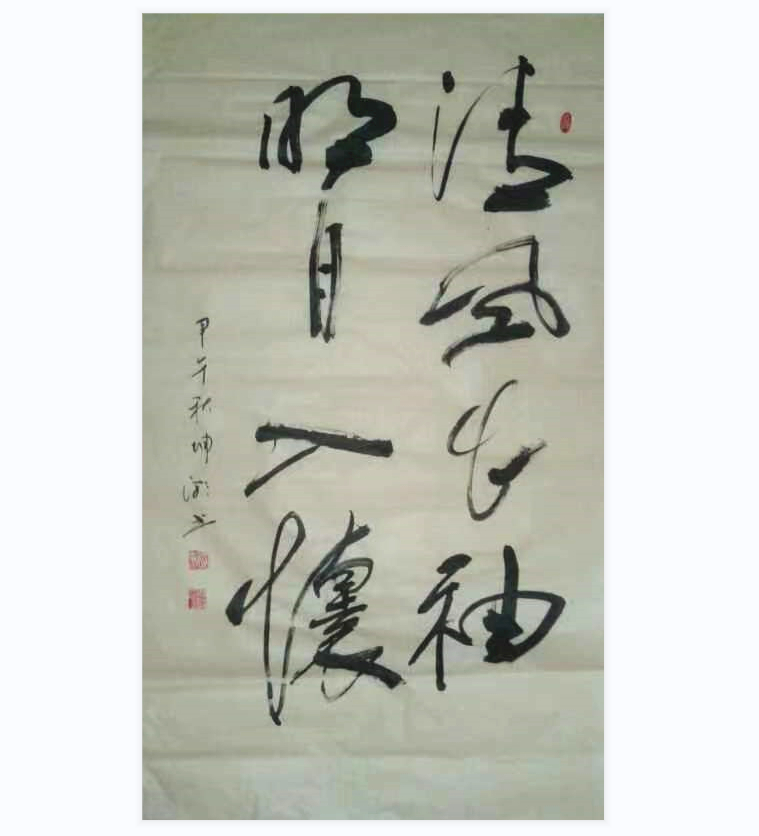 清风出袖
明月入懷
甲午秋坤书